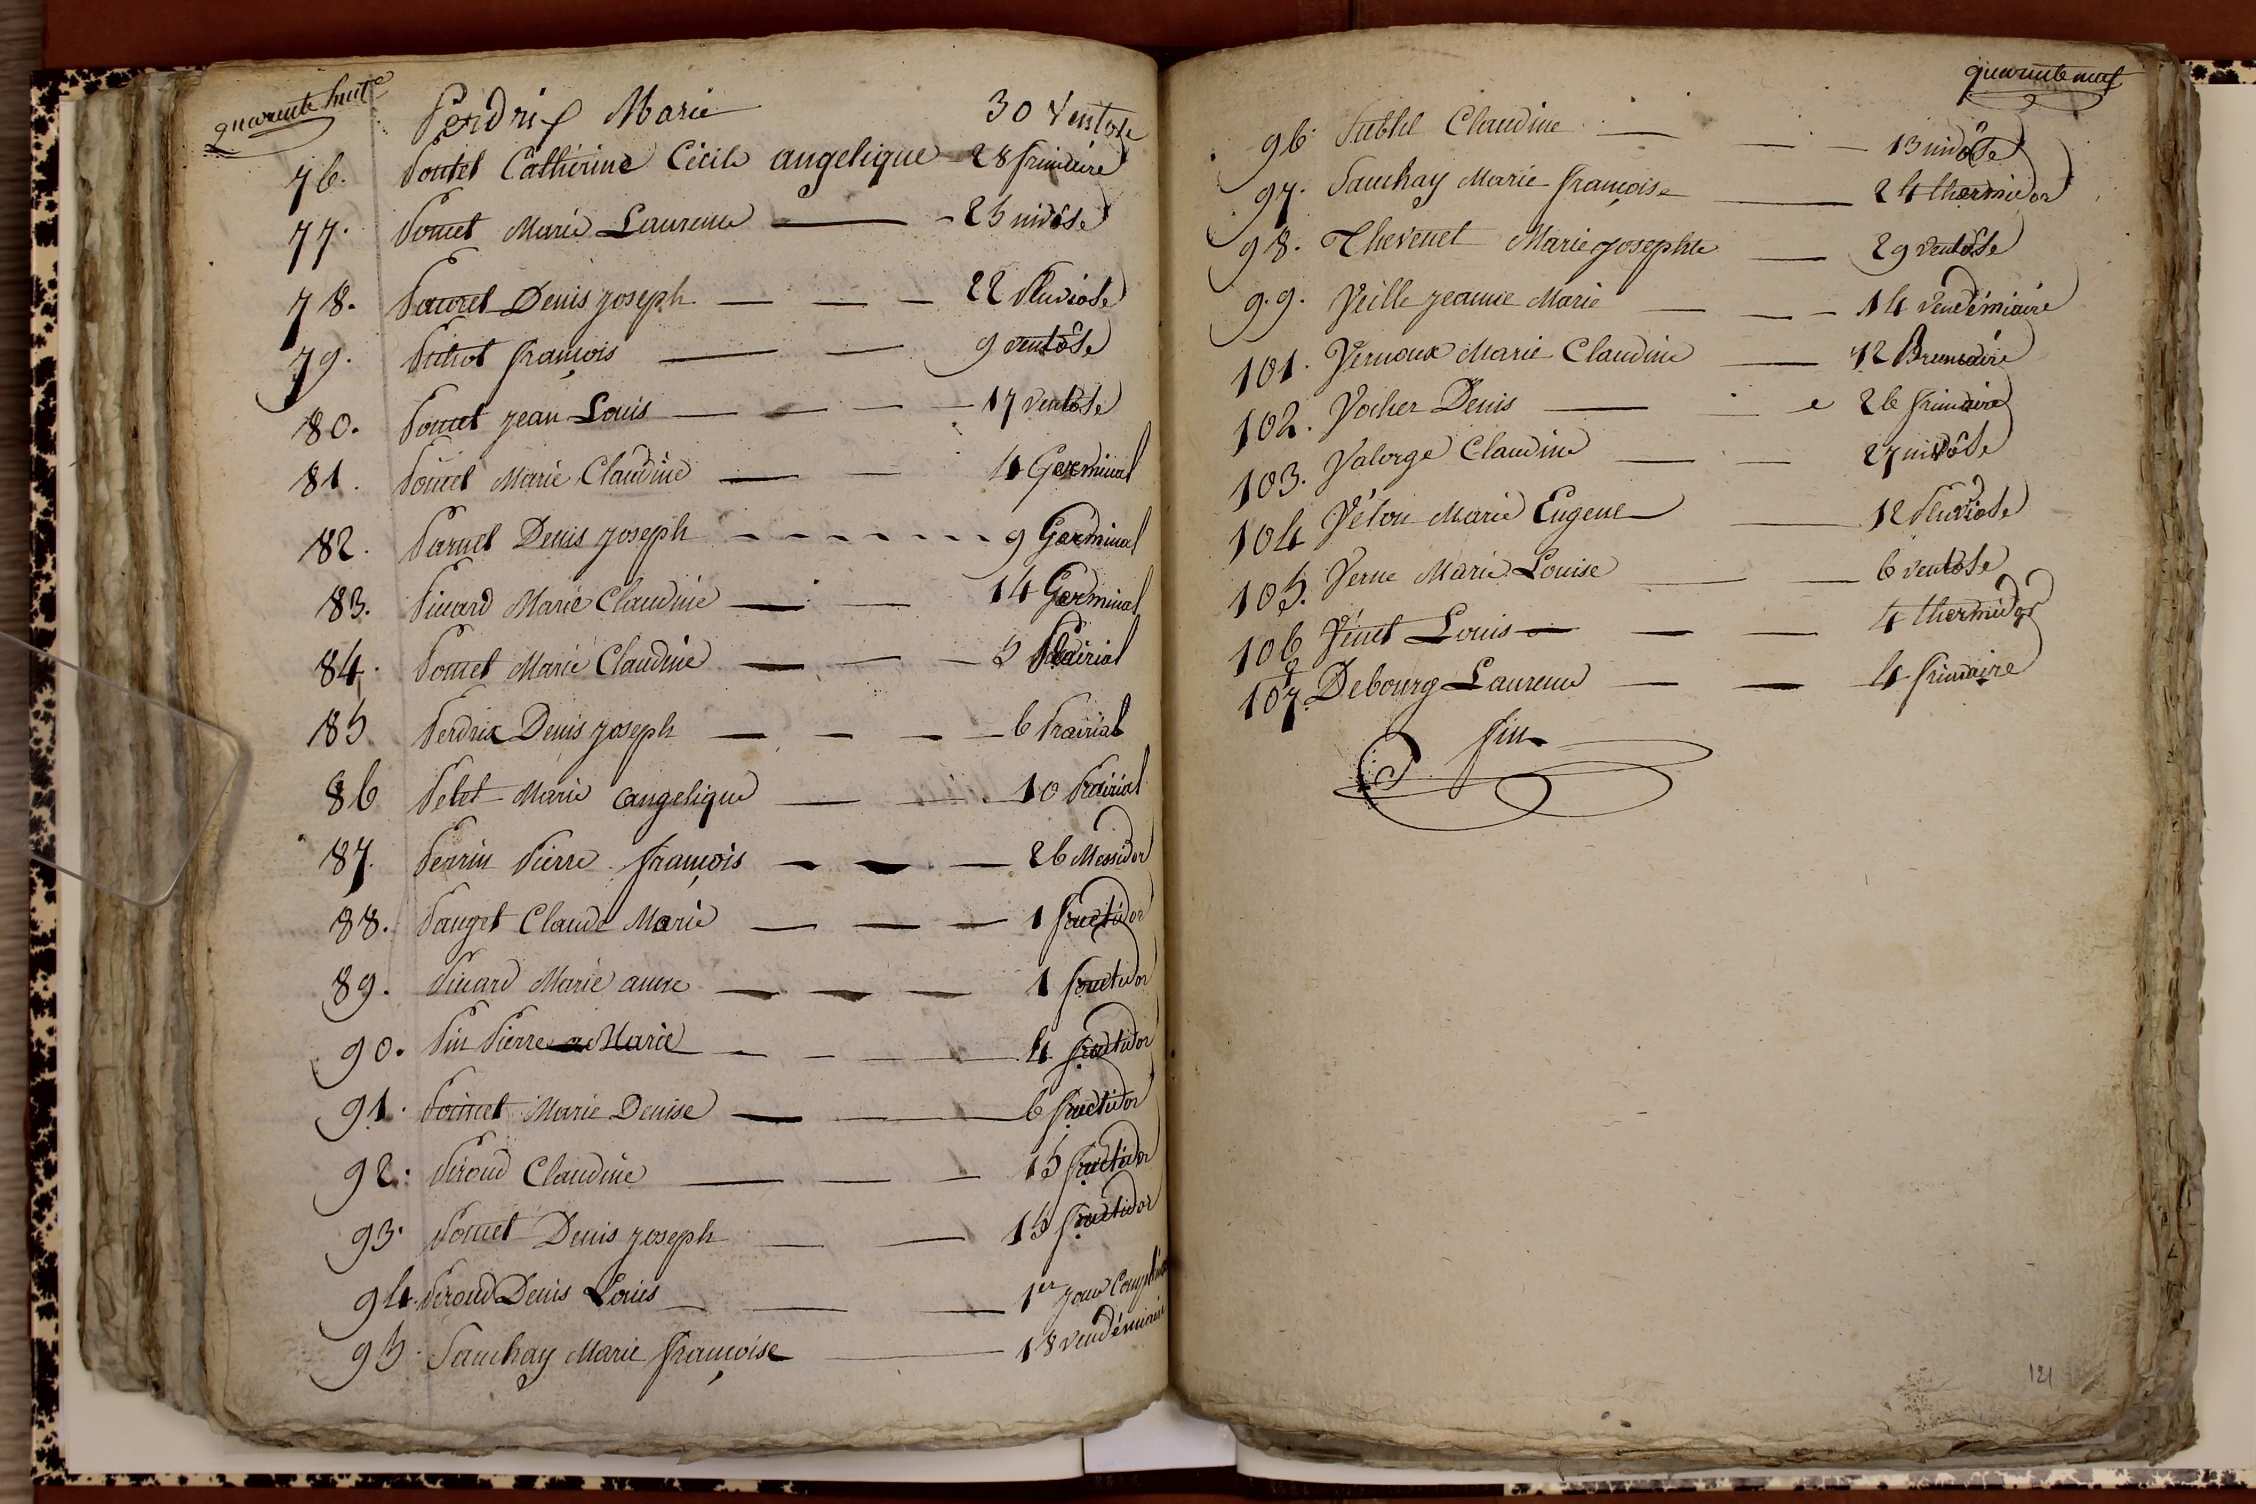 quarente huit
Perdrix Marie 30 Ventose
76. Poutet Cathérine Cécile angelique 28 frimaire
77. Poncet Marie Laurence 25 nivôse
78. Pauret Denis joseph 22 Pluviose
79. françois 9 ventôse
80. Poncet jean Louis 17 ventôse
81. Poncet Marie Claudine 4 Germinal
82. Parnet Denis joseph 9 Germinal
83. Pinard Marie Claudine 14 Germinal
84. Poncet Marie Claudine 5 Prairial
85. Perdrix Denis joseph 6 Prairial
86 Petet Marie angelique 10 Prairial
87. Perrin Pierre françois 26 Messidor
88. Pauget Claude Marie 1 fructidor
89. Pinard Marie anne 1 fructidor
90. Pin Pierre Marie 4 fructidor
91. Poncet Marie Denise 6 fructidor
92. Piroud Claudine 15 fructidor
93. Poncet Denis joseph 15 fructidor
94 Piroud Denis Louis 1er jour
95. Sauchay Marie françoise 18 vendémiaire
quarente neuf
96. Subtil Claudine 13 nivôse
97. Sauchay Marie françoise 24 thermidor
98. Thevenet Marie josephte 29 ventôse
99. Veille jeanne Marie 14 vendémiaire
101. Vernoux Marie Claudine 12 Brumaire
102. Vocher Denis 26 frimaire
103. Valorge Claudine 27 nivôse
104 Véton Marie Eugene 12 Pluviose
105. Verne Marie Louise 6 ventôse
106 Vinet Louis 4 thermidor
107. Debourg Laurence 4 frimaire
fin
121